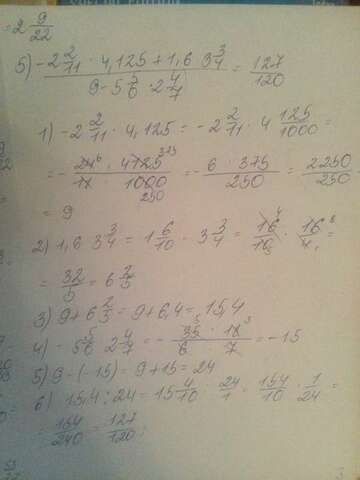 = 2 9/22
5) -2 2/11 · 4,125 + 1,6 3 3/4 / 9 - 5 5/6 : 2 4/7 = 127/120
1) -2 2/11 · 4,125 = -2 2/11 · 4 125/1000 =
= - 24/11 · 4125/1000 = - 6 · 375/250 = 2250/250
= 9
2) 1,6 3 3/4 = 1 6/10 · 3 3/4 = 16/10 · 16/4 =
= 32/5 = 6 2/5
3) 9 + 6 2/5 = 9 + 6,4 = 15,4
4) - 5 5/6 2 4/7 = - 35/6 · 18/7 = -15
5) 9 - (-15) = 9 + 15 = 24
6) 15,4 : 24 = 15 4/10 · 24/1 · 154/10 · 1/24 =
= 154/240 = 127/120 ;